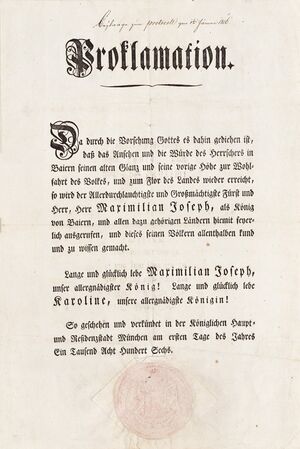 Beylage zum protocoll vom 1t Januar 1806
Proklamation.
Da durch die Vorsehung Gottes es dahin gediehen ist,
daß das Ansehen und die Würde des Herrschers in
Baiern seinen alten Glanz und seine vorige Höhe zur Wohl-
fahrt des Volkes, und zum Flor des Landes wieder erreicht,
so wird der Allerdurchlauchtigste und Großmächtigste Fürst und
Herr, Herr Maximilian Joseph, als König
von Baiern, und allen dazu gehörigen Ländern hiemit feyer-
lich ausgerufen, und dieses seinen Völkern allenthalben kund
und zu wissen gemacht.
Lange und glücklich lebe Maximilian Joseph,
unser allergnädigster König! Lange und glücklich lebe
Karoline, unsere allergnädigste Königin!
So geschehen und verkündet in der Königlichen Haupt-
und Residenzstadt München am ersten Tage des Jahres
Ein Tausend Acht Hundert Sechs.